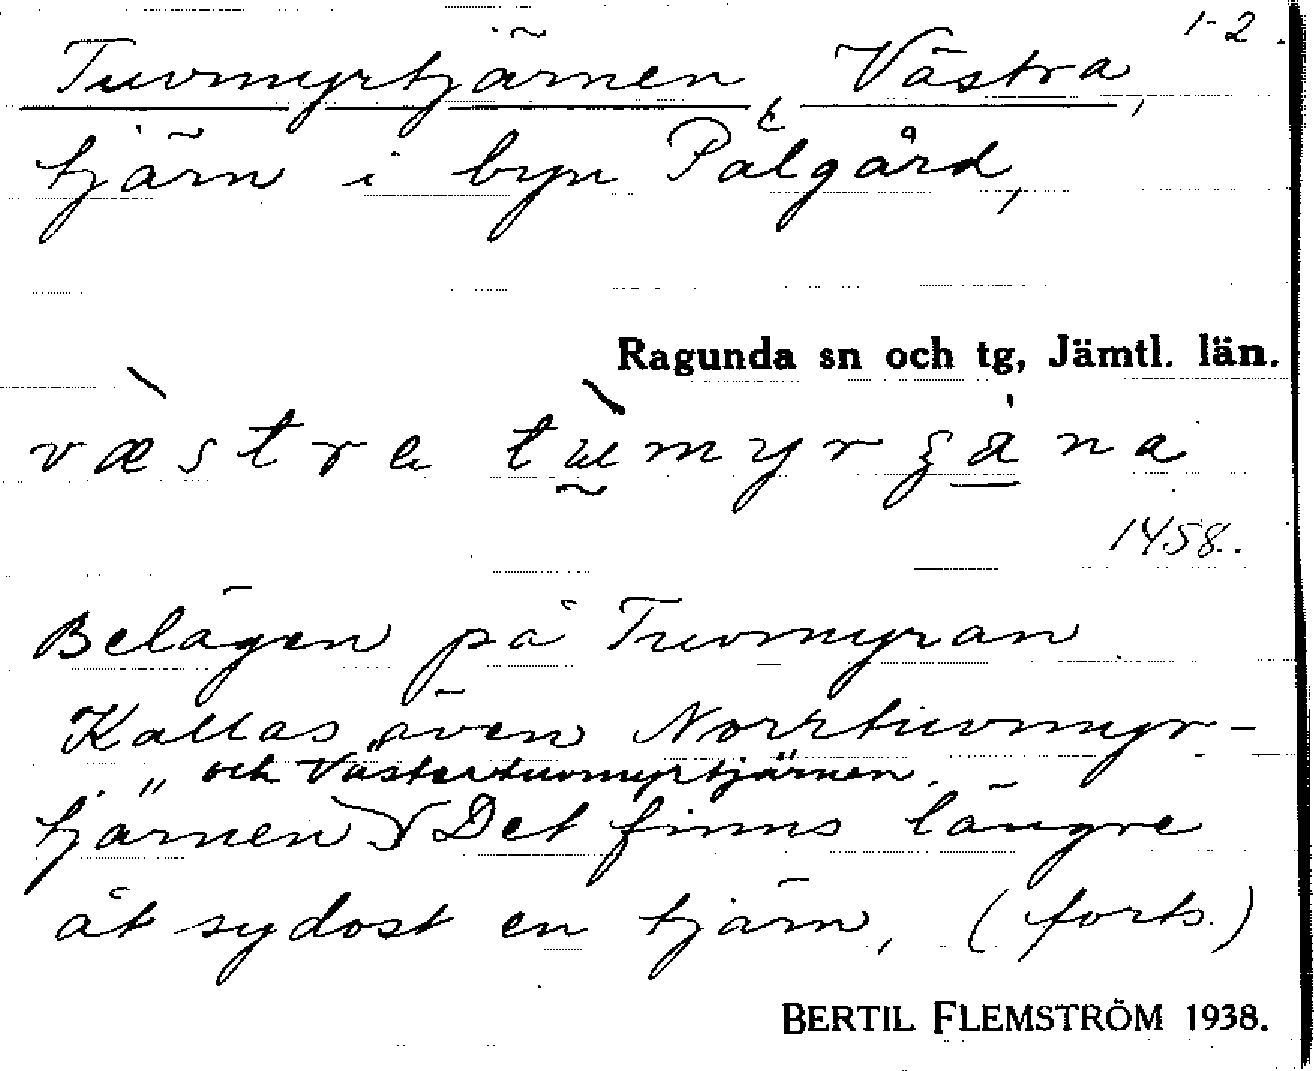 1-2.
Tuvmyrtjärnen, Västra,
tjärn i byn Pålgård,
Ragunda sn och tg, Jämtl. län.
1458.
Belägen på Tuvmyran
Kallas även Norrtuvmyr-
och Västertuvmyrtjärnen.
tjärnen Det finns längre
åt sydost en tjärn, (forts.)
BERTIL FLEMSTRÖM 1938.